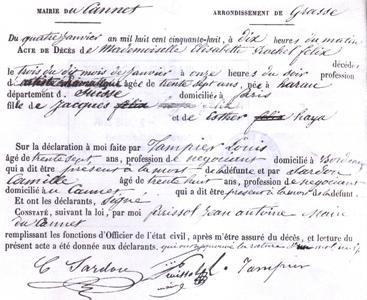 MAIRIE DU Cannet ARRONDISSEMENT DE Grasse
Du quatre janvier an mil huit cent cinquante-huit, à dix heures du matin
ACTE DE DÉCÈS de Mademoiselle Elisabeth Rachel félix
décédée
le trois du dit mois de janvier à onze heures du soir profession
d'artiste dramatique âgée de trente sept ans, née à
département d. Suisse domicilié à Paris
fille de Jacques félix
et de Esther félix haya
Sur la déclaration à moi faite par Tampier Louis
âgé de trente sept ans, profession de négociant domicilié à Bordeaux
qui a dit être présent à la mort de la défunte, et par Sardou
Camille âgé de trente huit ans, profession de négociant
domicilié au Cannet qui a dit être présent à la mort de la défunte.
Et ont les déclarants, signé
CONSTATÉ, suivant la loi, par moi Jean antoine Maire
du Cannet
remplissant les fonctions d'Officier de l'état civil, après m'être assuré du décès, et lecture du
présent acte a été donnée aux déclarants. qui ont approuvé la rature d'un mot nul
C Sardou Tampier